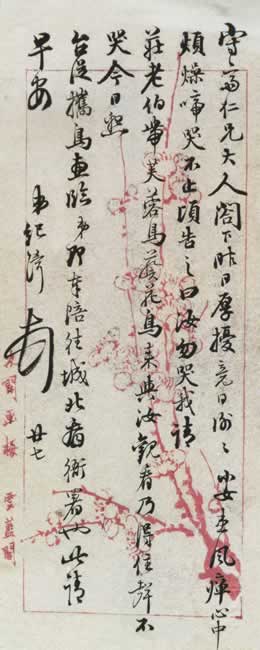 守之富仁兄大人閣下昨日厚擾竟日謝謝小女患風痺心中
煩燥啼哭不止頃告之曰汝勿哭我請
莊老伯帶芙蓉鳥荷花鳥來與汝觀看乃得住聲不
哭今日望
台從攜鳥惠臨弟即奉陪往城北看衙署也此請
早安
弟紀澤 頓 廿七